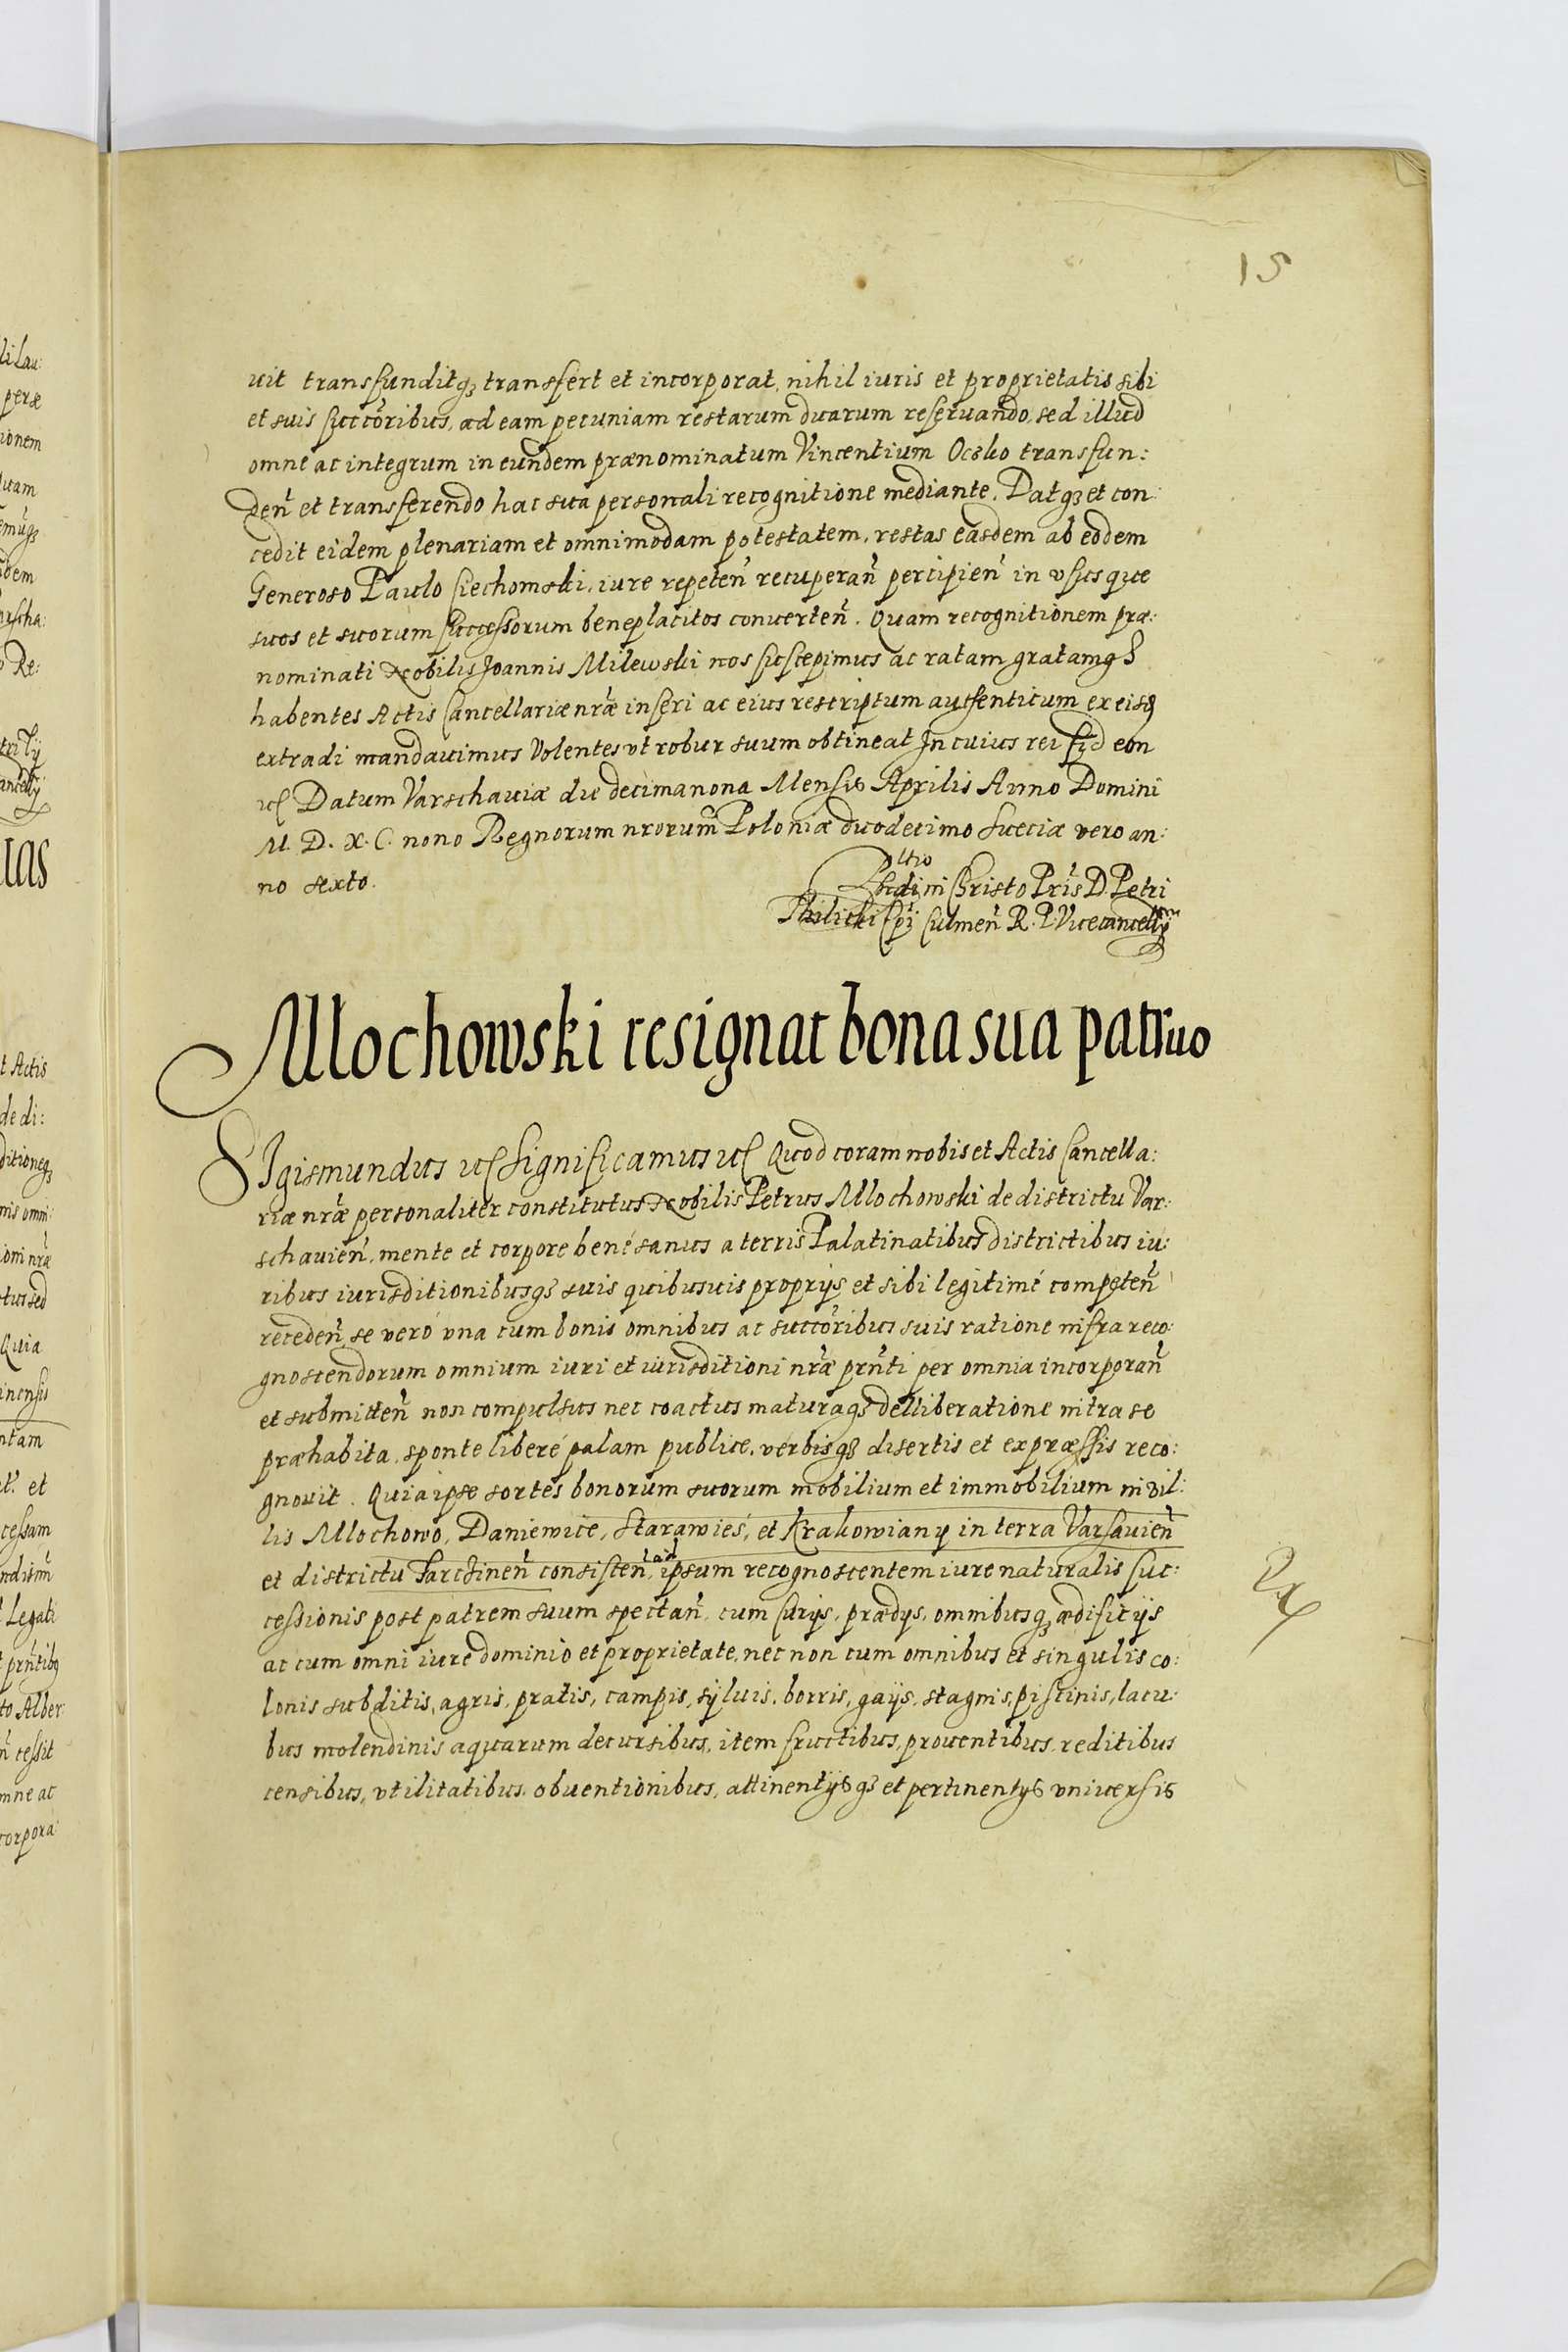 15
uit transfunditq₃ transfert et incorporat, nihil iuris et proprietatis sibi
et suis succõribus, ad eam pecuniam restarum duarum reseruando, sed illud
omne ac integrum in eundem prænominatum Vincentium Ocsko transfun:
deñ et transferendo hac sua personali recognitione mediante. Datq₃ et con:
cedit eidem plenariam et omnimodam potestatem, restas easdem ab eodem
Generoso Paulo Ciechomski, iure repeteñ recuperañ percipieñ in vsusque
suos et suorum successorum beneplacitos conuerteñ. Quam recognitionem præ:
nominati Nobilis Joannis Milewski nos suscepimus ac ratam gratamq₃
habentes Actis Cancellariæ nr̃æ inseri ac eius rescriptum authenticum ex eisd̃
extradi mandauimus Volentes vt robur suum obtineat In cuius rei fid eon
uc̃ Datum Varschauiæ die decimanona Mensis Aprilis Anno Domini
M. D. X. C. nono Regnorum nrorum̃ Poloniæ duodecimo Sueciæ vero an:
no sexto.
Rltio
Rndi in Christo Pr̃is D. Petri
Thilicki Ep̃i Culmeñ R. P. Vicecancellrÿ
Mlochowski resignat bona sua patruo
SIgismundus uc̃ Significamus uc̃ Quod coram nobis et Actis Cancella:
riæ nr̃æ personaliter constitutus Nobilis Petrus Mlochowski de districtu Var:
schauieñ, mente et corpore bené sanus a terris Palatinatibus districtibus iu:
ribus iurisditionibusq₃ suis quibusuis proprÿs et sibi legitimé competeñ
recedeñ, se veró vna cum bonis omnibus ac succõribus suis ratione infra reco:
gnoscendorum omnium iuri et iurisditioni nr̃æ prñti per omnia incorporañ
et submitteñ non compulsus nec coactus maturaq₃ delliberatione intra se
præhabita, sponte liberé palam publice, verbisq₃ disertis et expræssis reco:
gnouit. Quia ipse sortes bonorum suorum mobilium et immobilium in vil:
lis Mlochowo, Daniewice, Starawieś, et Krakowiany in terra Varsauieñ
et districtu Tarczineñ consisteñ, ad ipsum recognoscentem iure naturalis suc:
cessionis post patrem suum spectañ, cum Curÿs, prædys, omnibusq₃ ædificÿs
ac cum omni iure dominio et proprietate, nec non cum omnibus et singulis co:
lonis subditis, agris, pratis, campis, sÿluis, borris, gaÿs, stagnis, piscinis, lacu:
bus molendinis aquarum decursibus, item fructibus, prouentibus, reditibus
censibus, vtilitatibus, obuentionibus, attinentÿsq₃ et pertinentÿs vniuersis